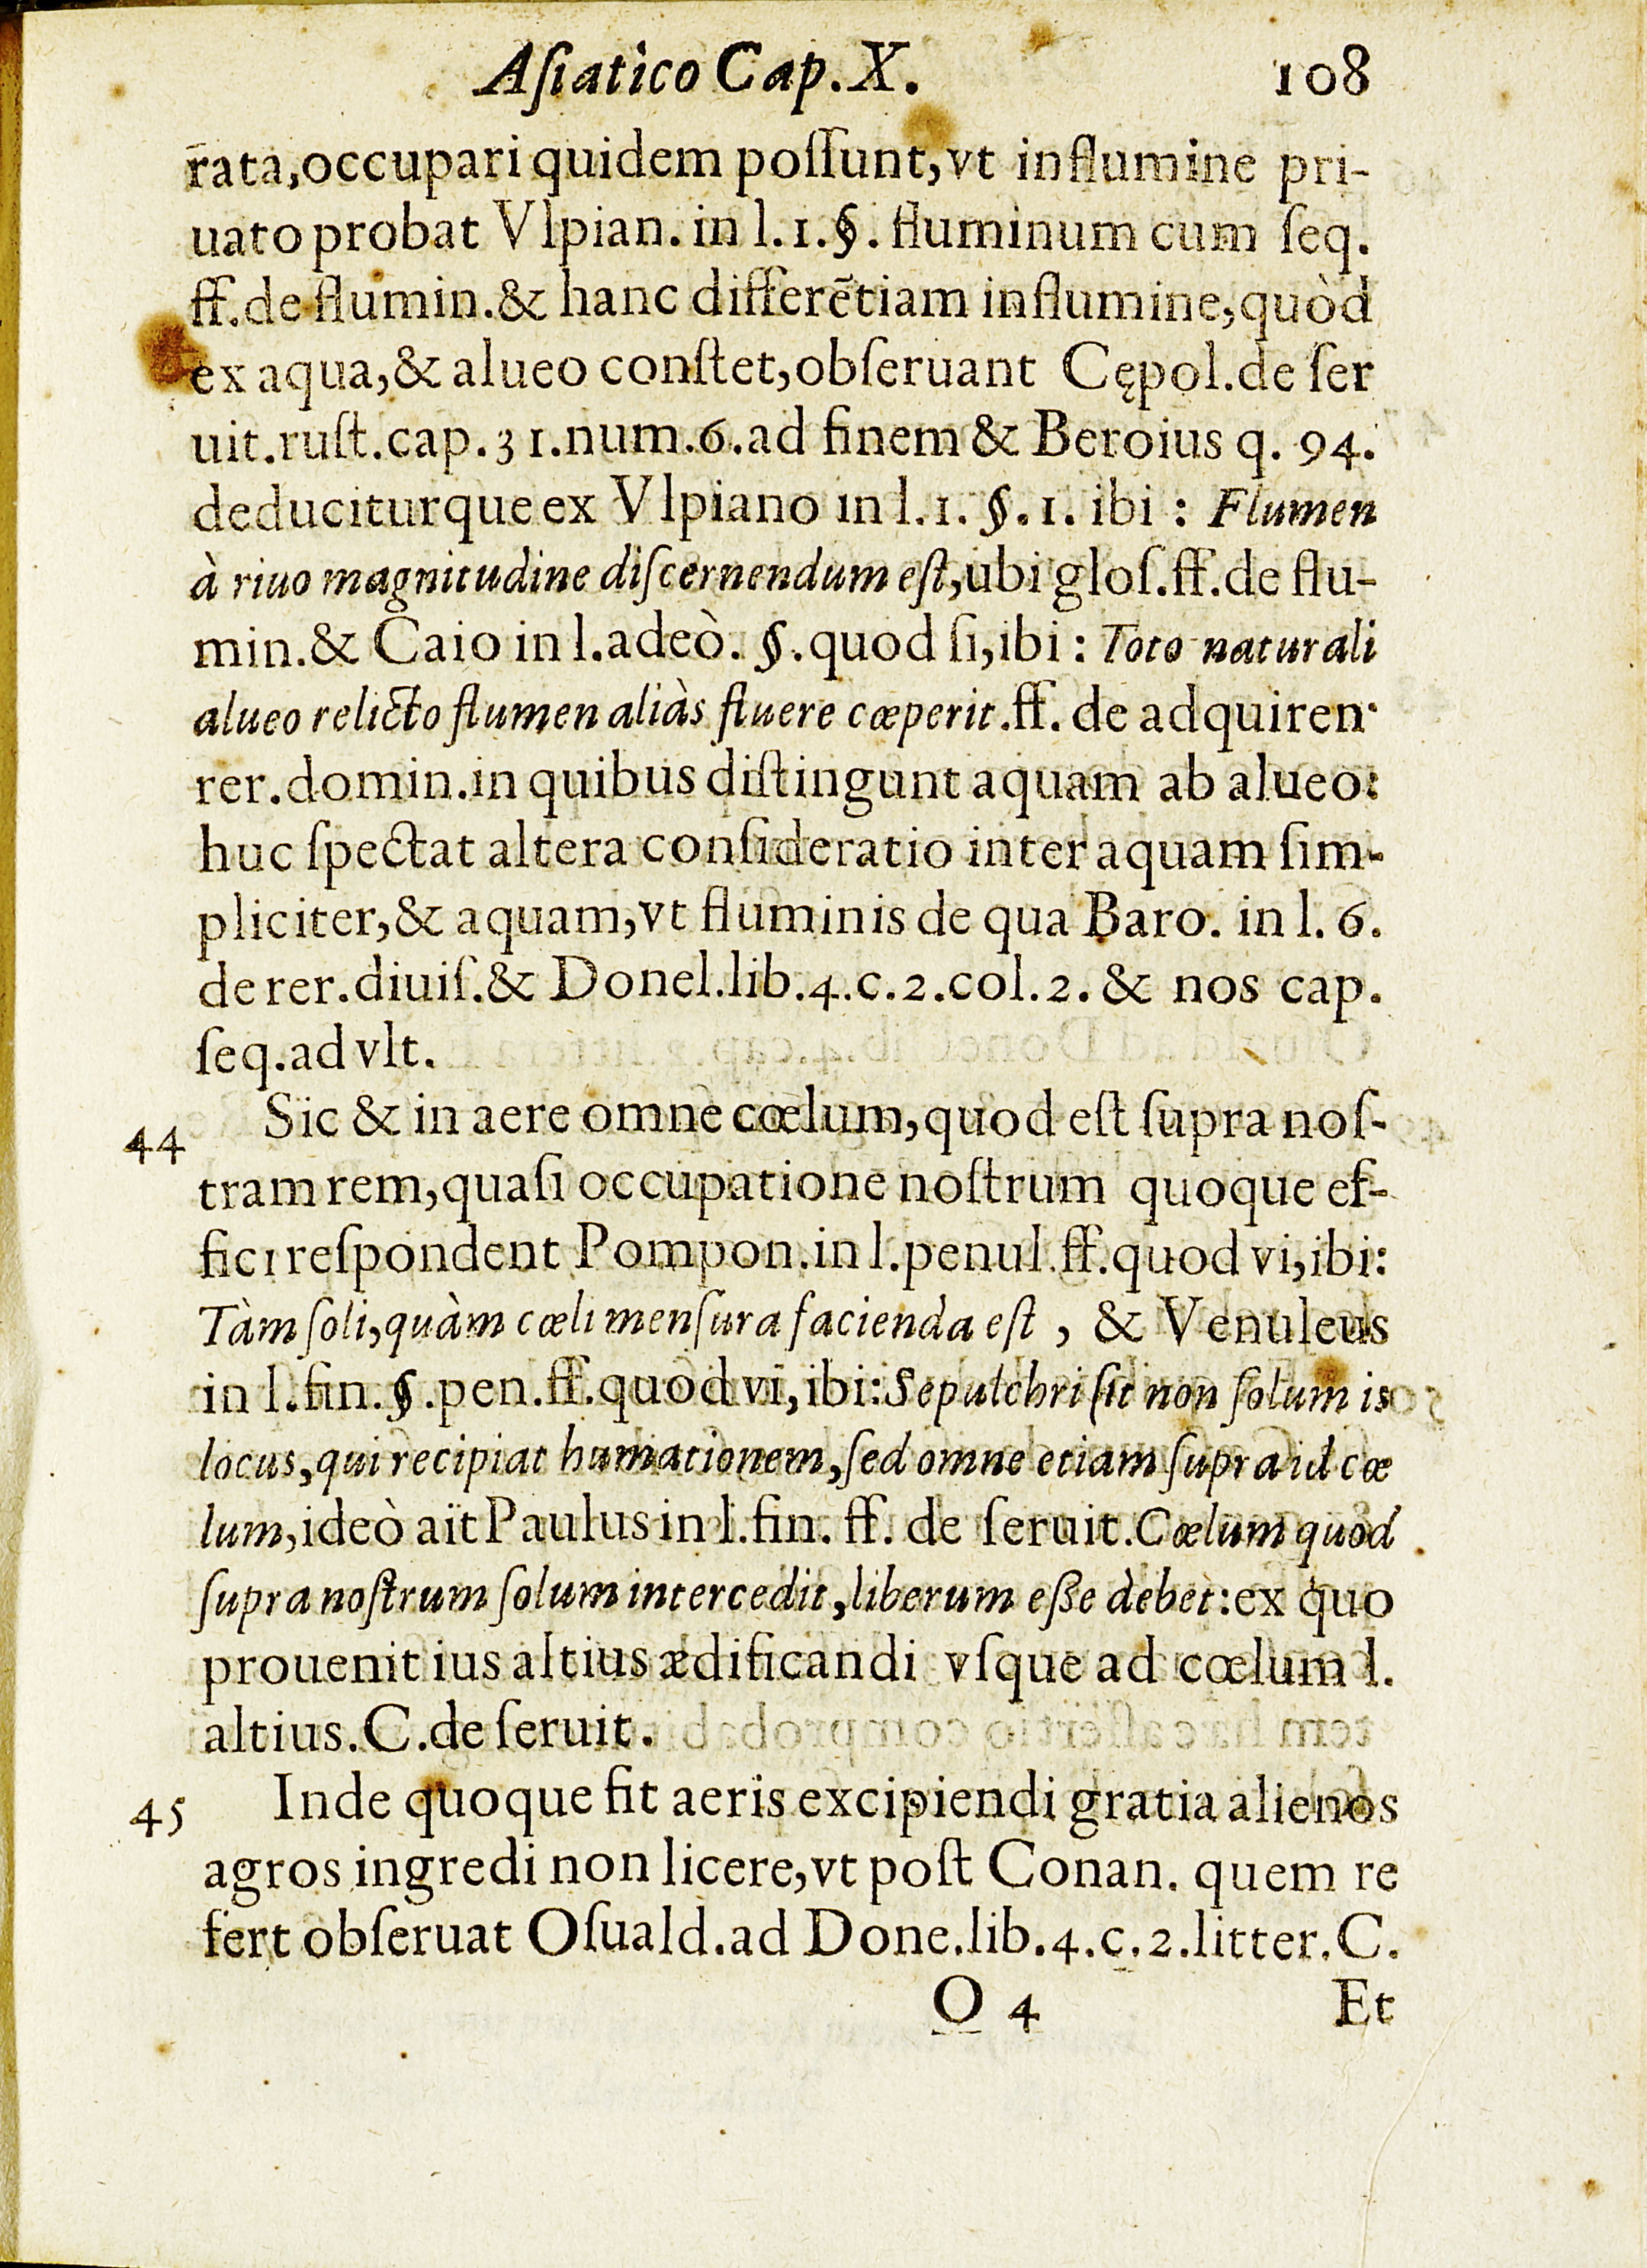 Aſiatico Cap. X. 108
rata, occupari quidem poſſunt, vt in flumine pri-
uato probat Vlpian. in l. 1. §. fluminum cum ſeq.
ff. de flumin. & hanc differẽtiam in flumine, quòd
ex aqua, & alueo conſtet, obſeruant Cępol. de ſer
uit. ruſt. cap. 31. num. 6. ad finem & Beroius q. 94.
deduciturque ex Vlpiano in l. 1. §. 1. ibi : Flumen
à riuo magnitudine diſcernendum eſt, ubi gloſ. ff. de flu-
min. & Caio in l. adeò. §. quod ſi, ibi : Toto naturali
alueo relicto flumen aliàs fluere cœperit. ff. de adquiren.
rer. domin. in quibus diſtingunt aquam ab alueo:
huc ſpectat altera conſideratio inter aquam ſim-
pliciter, & aquam, vt fluminis de qua Baro. in l. 6.
de rer. diuiſ. & Donel. lib. 4. c. 2. col. 2. & nos cap.
ſeq. ad vlt.
44 Sic & in aere omne cœlum, quod eſt ſupra noſ-
tram rem, quaſi occupatione noſtrum quoque ef-
fici reſpondent Pompon. in l. penul. ff. quod vi, ibi:
Tàm ſoli, quàm cœli menſura facienda eſt , & Venuleus
in l. fin. §. pen. ff. quod vi, ibi: Sepulchri ſit non ſolum is
locus, qui recipiat humationem, ſed omne etiam ſupra id cœ
lum, ideò ait Paulus in l. fin. ff. de ſeruit. Cœlum quod
ſupra noſtrum ſolum intercedit, liberum eſſe debet: ex quo
prouenit ius altius ædificandi vſque ad cœlum l.
altius. C. de ſeruit.
45 Inde quoque fit aeris excipiendi gratia alienos
agros ingredi non licere, vt poſt Conan. quem re
fert obſeruat Oſuald. ad Done. lib. 4. c. 2. litter. C.
O 4 Et